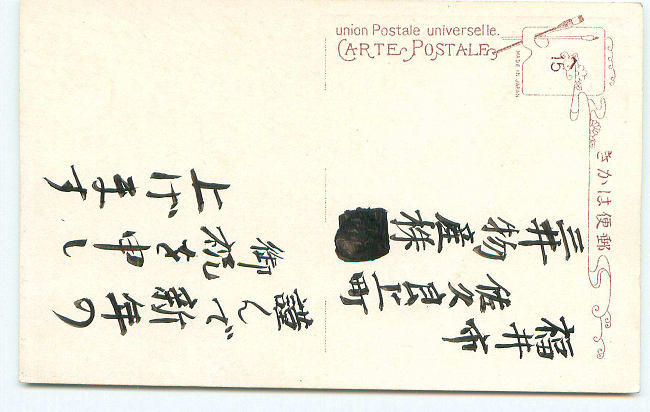 union Postale universelle.
CARTE POSTALE
MADE IN JAPAN
15
郵便はかき
福井市
佐久良上町
三井物産様
謹んで新年の
御祝を申し
上げます